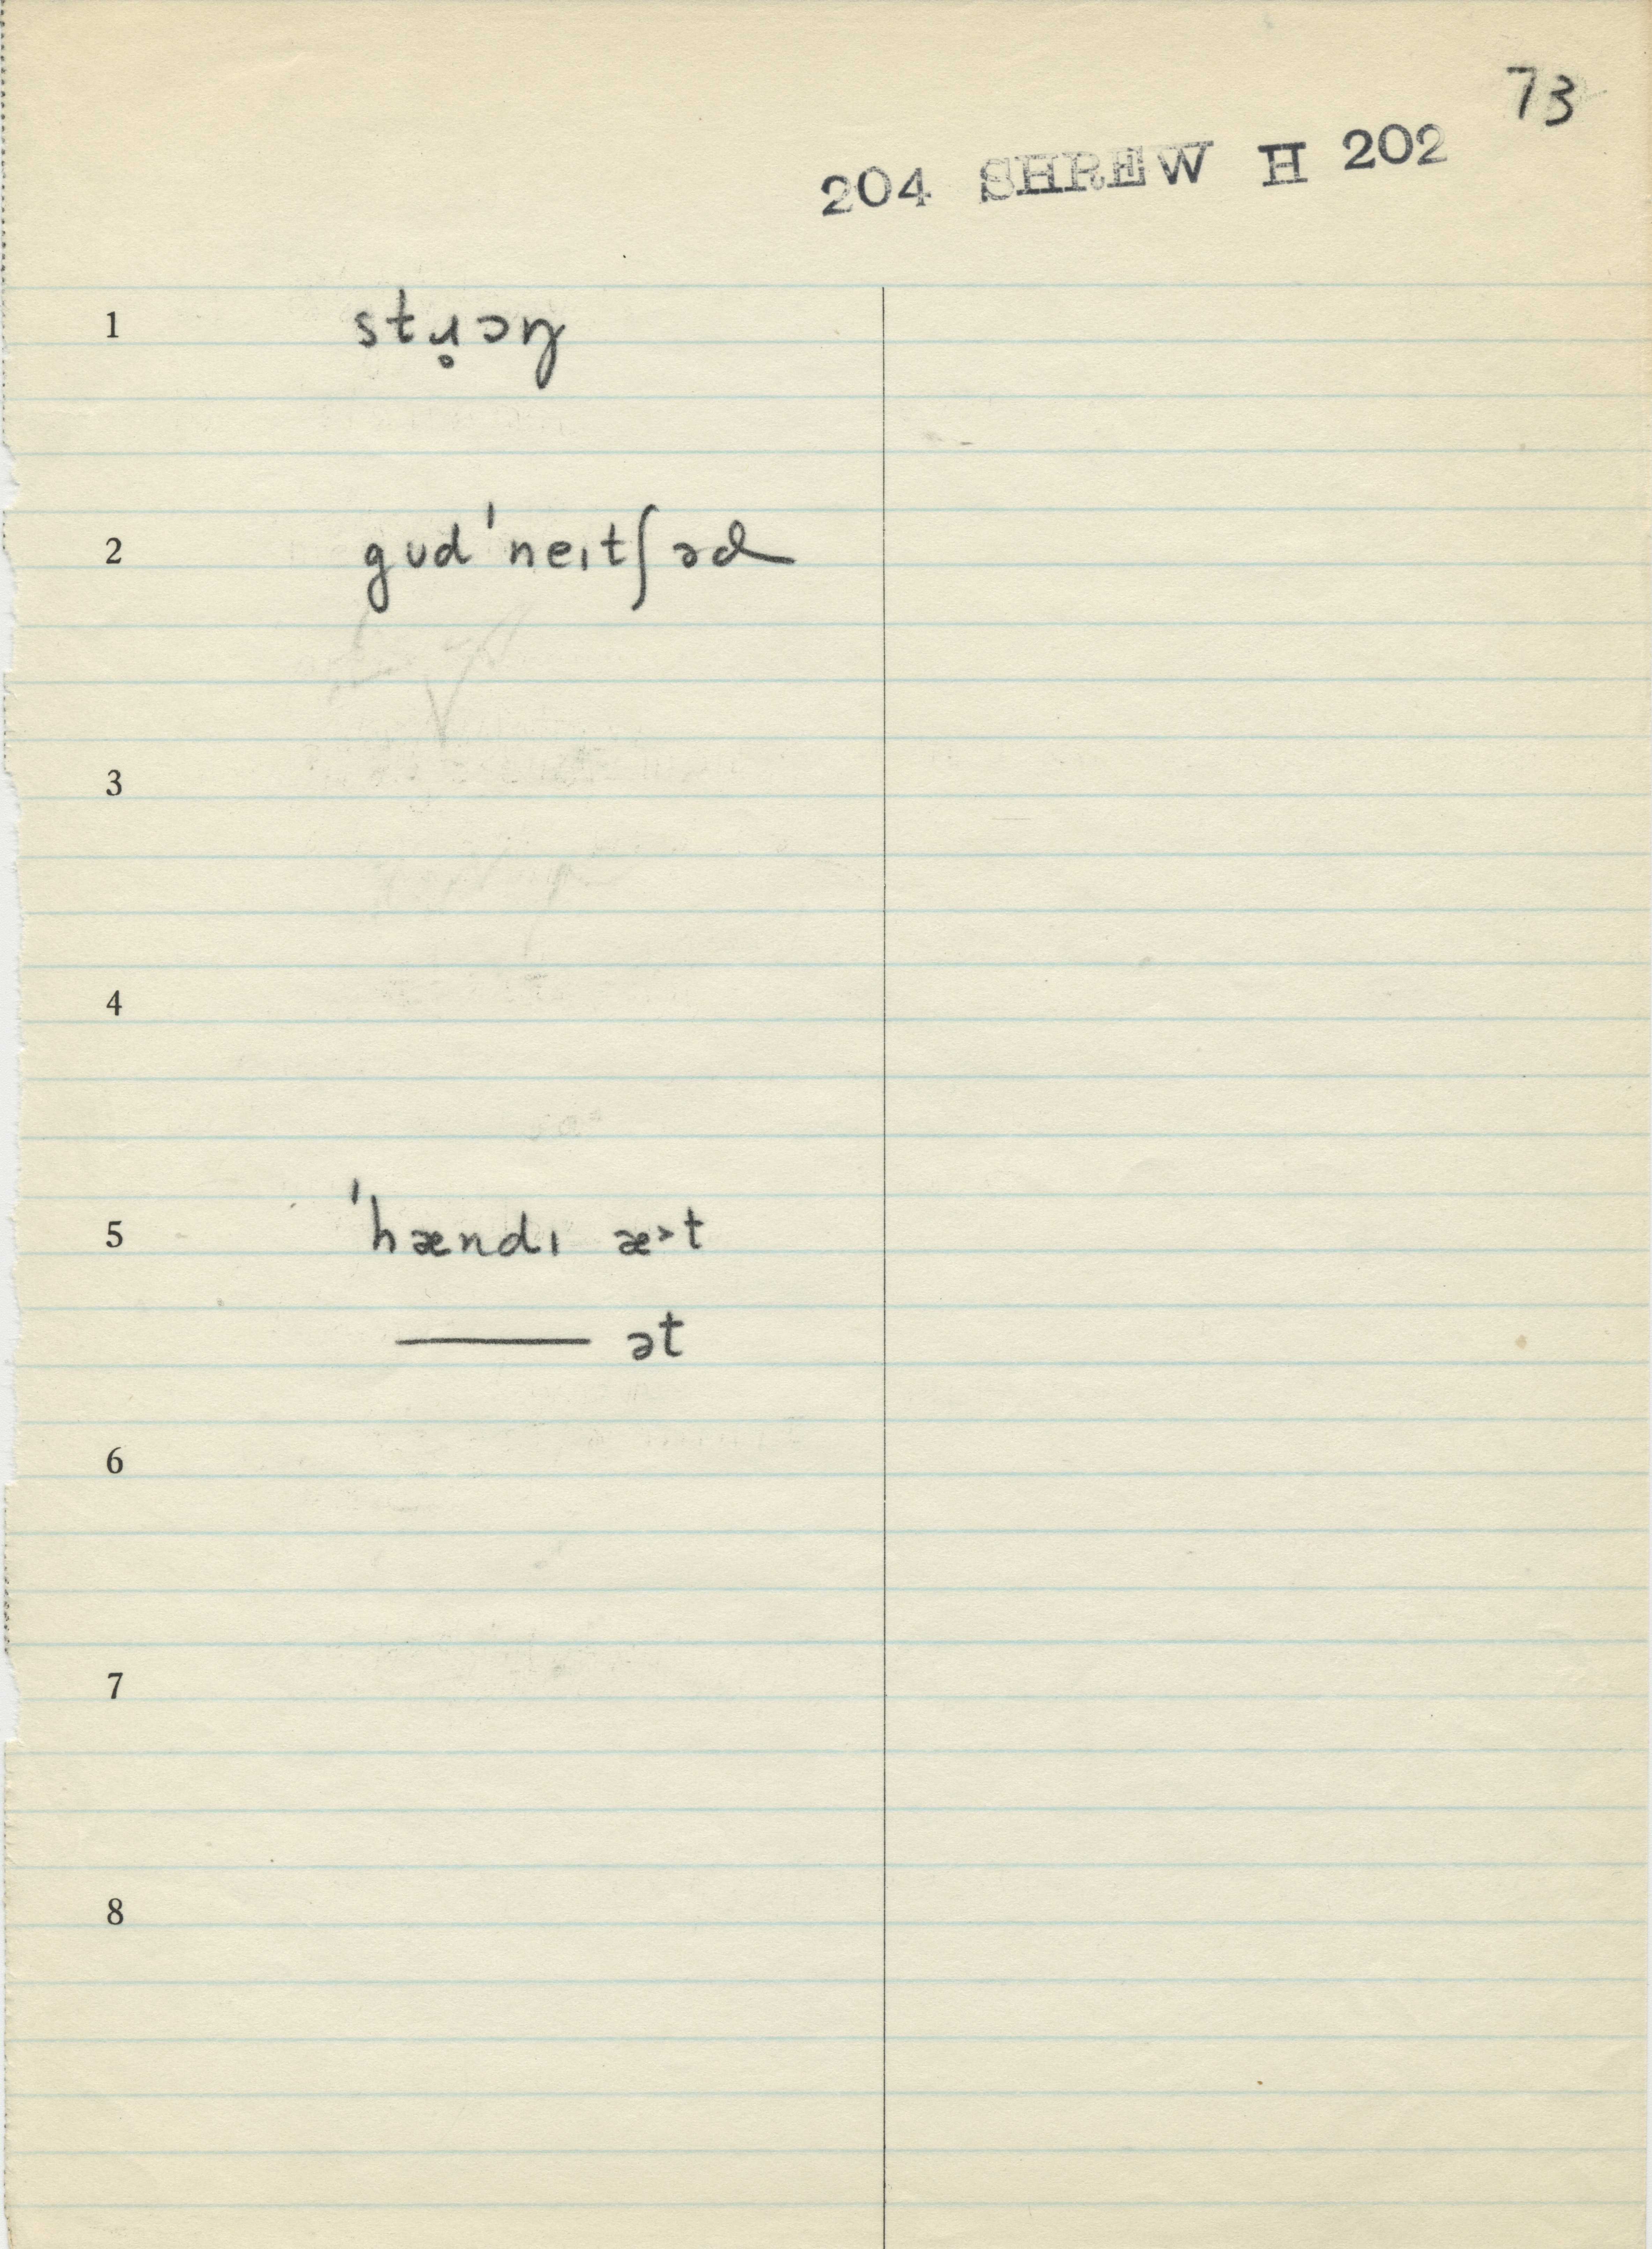 73
204 SHREW H 202
1 stɹ̥ɔŋ
2 gud'neɪtʃəd
3
4
5 'hændɪ æ>t
——— ət
6
7
8